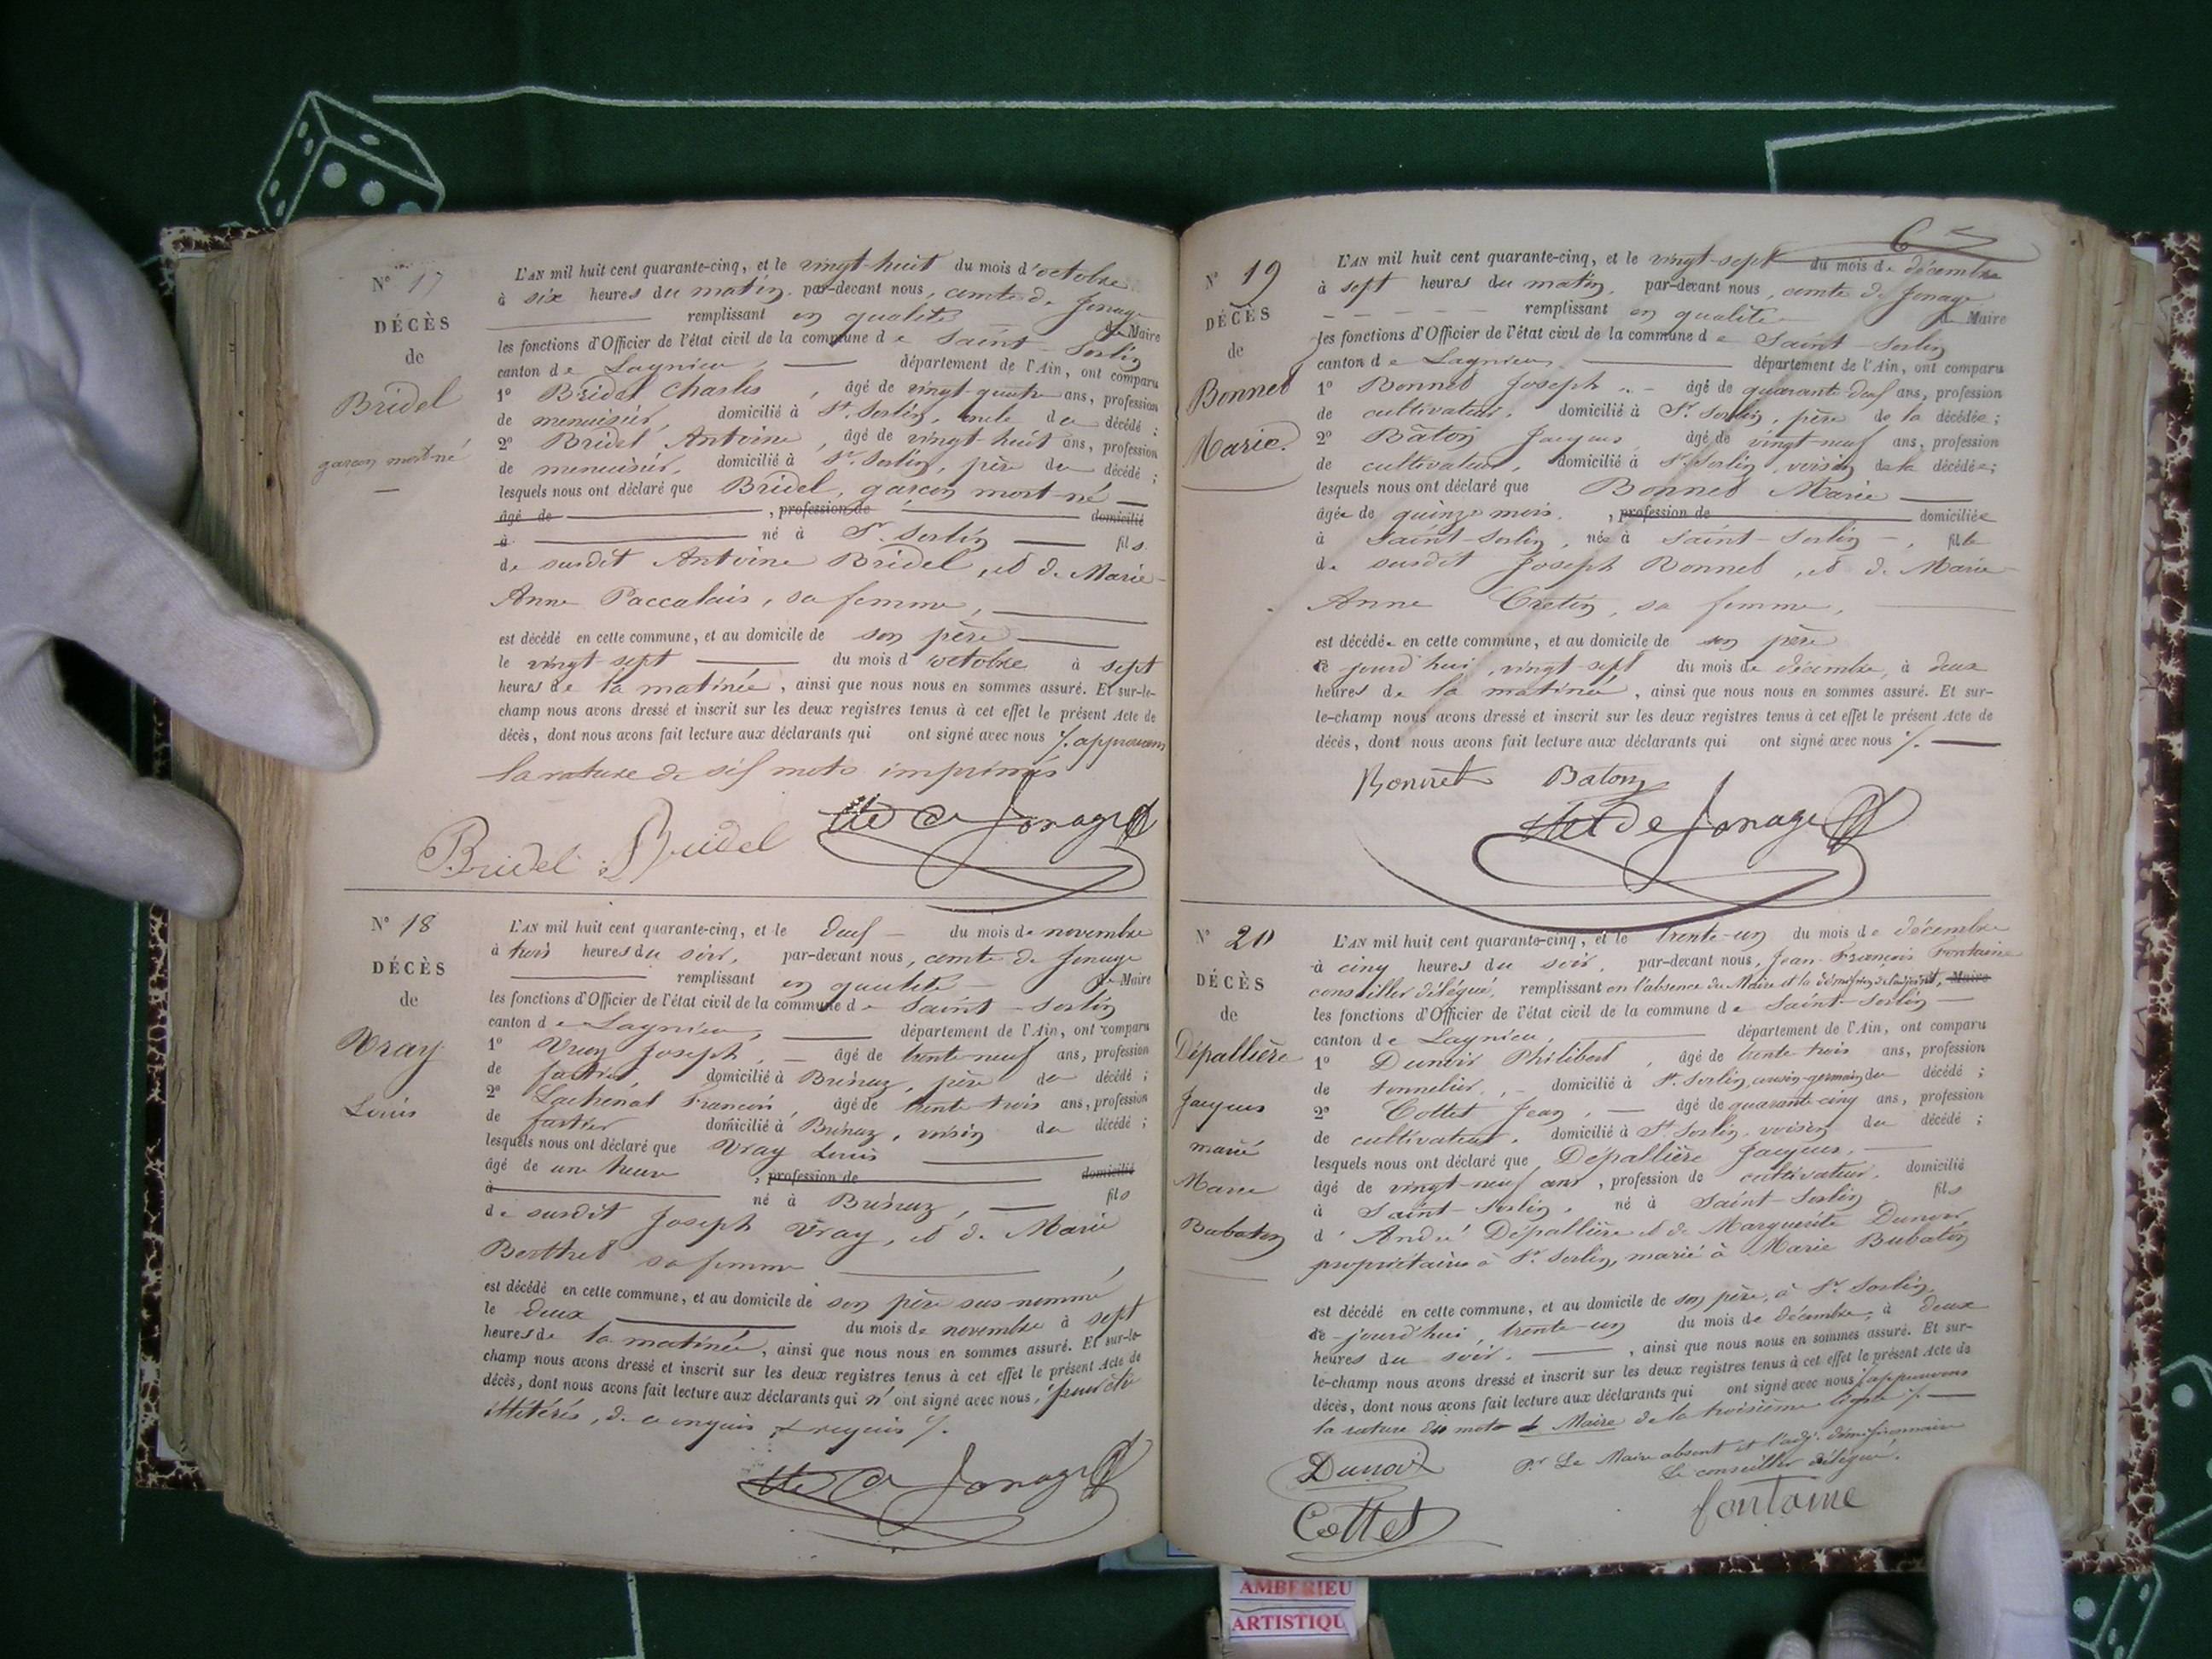 N° 17
DÉCÈS
de
Bridel
garçon mort-né
L'AN mil huit cent quarante-cinq, et le vingt-huit du mois d'octobre
à six heures du matin, par-devant nous, comte de Jonage
remplissant en qualité de Maire
les fonctions d'Officier de l'état civil de la commune de Saint-Sorlin
canton de Lagnieu, département de l'Ain, ont comparu
1° Bridel Charles, âgé de vingt-quatre ans, profession
de menuisier, domicilié à St. Sorlin, oncle du décédé ;
2° Bridel Antoine, âgé de vingt-huit ans, profession
de menuisier, domicilié à St. Sorlin, père du décédé ;
lesquels nous ont déclaré que Bridel, garçon mort-né
âgé de , profession de domicilié
à né à St. Sorlin fils
de susdit Antoine Bridel, et de Marie-
Anne Paccalais, sa femme,
est décédé en cette commune, et au domicile de son père
le vingt-sept du mois d'octobre à sept
heures de la matinée, ainsi que nous nous en sommes assuré. Et sur-le-
champ nous avons dressé et inscrit sur les deux registres tenus à cet effet le présent Acte de
décès, dont nous avons fait lecture aux déclarants qui ont signé avec nous ./. approuvons
la rature de six mots imprimés
Bridel Bridel de Jonage
N° 18
DÉCÈS
de
Vray
Louis
L'AN mil huit cent quarante-cinq, et le deux du mois de novembre
à trois heures du soir, par-devant nous, comte de Jonage
remplissant en qualité de Maire
les fonctions d'Officier de l'état civil de la commune de Saint-Sorlin
canton de Lagnieu, département de l'Ain, ont comparu
1° Vray Joseph, âgé de trente-neuf ans, profession
de domicilié à père du décédé ;
2° Lachenal François, âgé de trente trois ans, profession
de domicilié à voisin du décédé ;
lesquels nous ont déclaré que Vray Louis
âgé de une heure , profession de domicilié
à né à fils
de susdit Joseph Vray, et de Marie
Berthet sa femme
est décédé en cette commune, et au domicile de son père sus-nommé
le deux du mois de novembre à sept
heures de la matinée, ainsi que nous nous en sommes assuré. Et sur-le-
champ nous avons dressé et inscrit sur les deux registres tenus à cet effet le présent Acte de
décès, dont nous avons fait lecture aux déclarants qui n'ont signé avec nous, pour être
illitérés, de ce enquis & requis ./.
de Jonage
6
N° 19
DÉCÈS
de
Bonnet
Marie
L'AN mil huit cent quarante-cinq, et le vingt-sept du mois de décembre
à sept heures du matin, par-devant nous, comte de Jonage
remplissant en qualité de Maire
les fonctions d'Officier de l'état civil de la commune de Saint-Sorlin
canton de Lagnieu département de l'Ain, ont comparu
1° Bonnet Joseph âgé de quarante-deux ans, profession
de cultivateur, domicilié à St. Sorlin, père de la décédée ;
2° Bâton Jacques âgé de vingt-neuf ans, profession
de cultivateur, domicilié à St. Sorlin, voisin de la décédée ;
lesquels nous ont déclaré que Bonnet Marie
âgée de quinze mois, profession de domiciliée
à Saint-Sorlin, née à Saint-Sorlin, fille
de susdit Joseph Bonnet, et de Marie-
Anne Cretin, sa femme,
est décédée en cette commune, et au domicile de son père
ce jourd'hui, vingt-sept du mois de décembre, à deux
heures de la matinée, ainsi que nous nous en sommes assuré. Et sur-
le-champ nous avons dressé et inscrit sur les deux registres tenus à cet effet le présent Acte de
décès, dont nous avons fait lecture aux déclarants qui ont signé avec nous ./.
Bonnet Baton
de Jonage
N° 20
DÉCÈS
de
Dépallière
Jacques
marié
Marie
Bubaton
L'AN mil huit cent quarante-cinq, et le trente-un du mois de décembre
à cinq heures du soir, par-devant nous, Jean-François Fontaine
conseiller délégué, remplissant en l'absence du Maire et la démission de l'adjoint, Maire
les fonctions d'Officier de l'état civil de la commune de Saint-Sorlin
canton de Lagnieu, département de l'Ain, ont comparu
1° Dunoir Philibert, âgé de trente trois ans, profession
de tonnelier, domicilié à St. Sorlin, cousin-germain du décédé ;
2° Cottet Jean, âgé de quarante-cinq ans, profession
de cultivateur, domicilié à St. Sorlin, voisin du décédé ;
lesquels nous ont déclaré que Dépallière Jacques,
âgé de vingt-neuf ans, profession de cultivateur, domicilié
à Saint-Sorlin, né à Saint-Sorlin fils
d'André Dépallière et de Marguerite Dunoir,
propriétaires à St. Sorlin, marié à Marie Bubaton
est décédé en cette commune, et au domicile de son père, à St. Sorlin,
ce jourd'hui, trente-un du mois de décembre, à deux
heures du soir, ainsi que nous nous en sommes assuré. Et sur-
le-champ nous avons dressé et inscrit sur les deux registres tenus à cet effet le présent Acte de
décès, dont nous avons fait lecture aux déclarants qui ont signé avec nous, approuvons
la rature du mots de Maire de la troisième ligne ./.
Dunoir Pr. Le Maire absent et l'adj. démissionnaire
Le conseiller délégué,
Cottet fontaine
AMBERIEU
ARTISTIQU